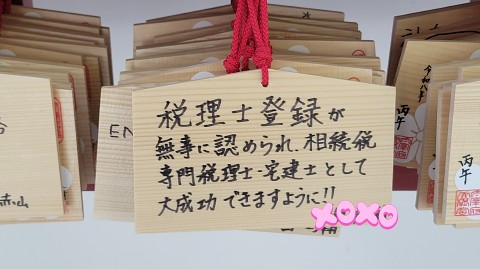 税理士登録が
無事に認められ、相続税
専門税理士・宅建士として
大成功できますように!!
XOXO
EN
赤山
令和八年
丙午
丙午